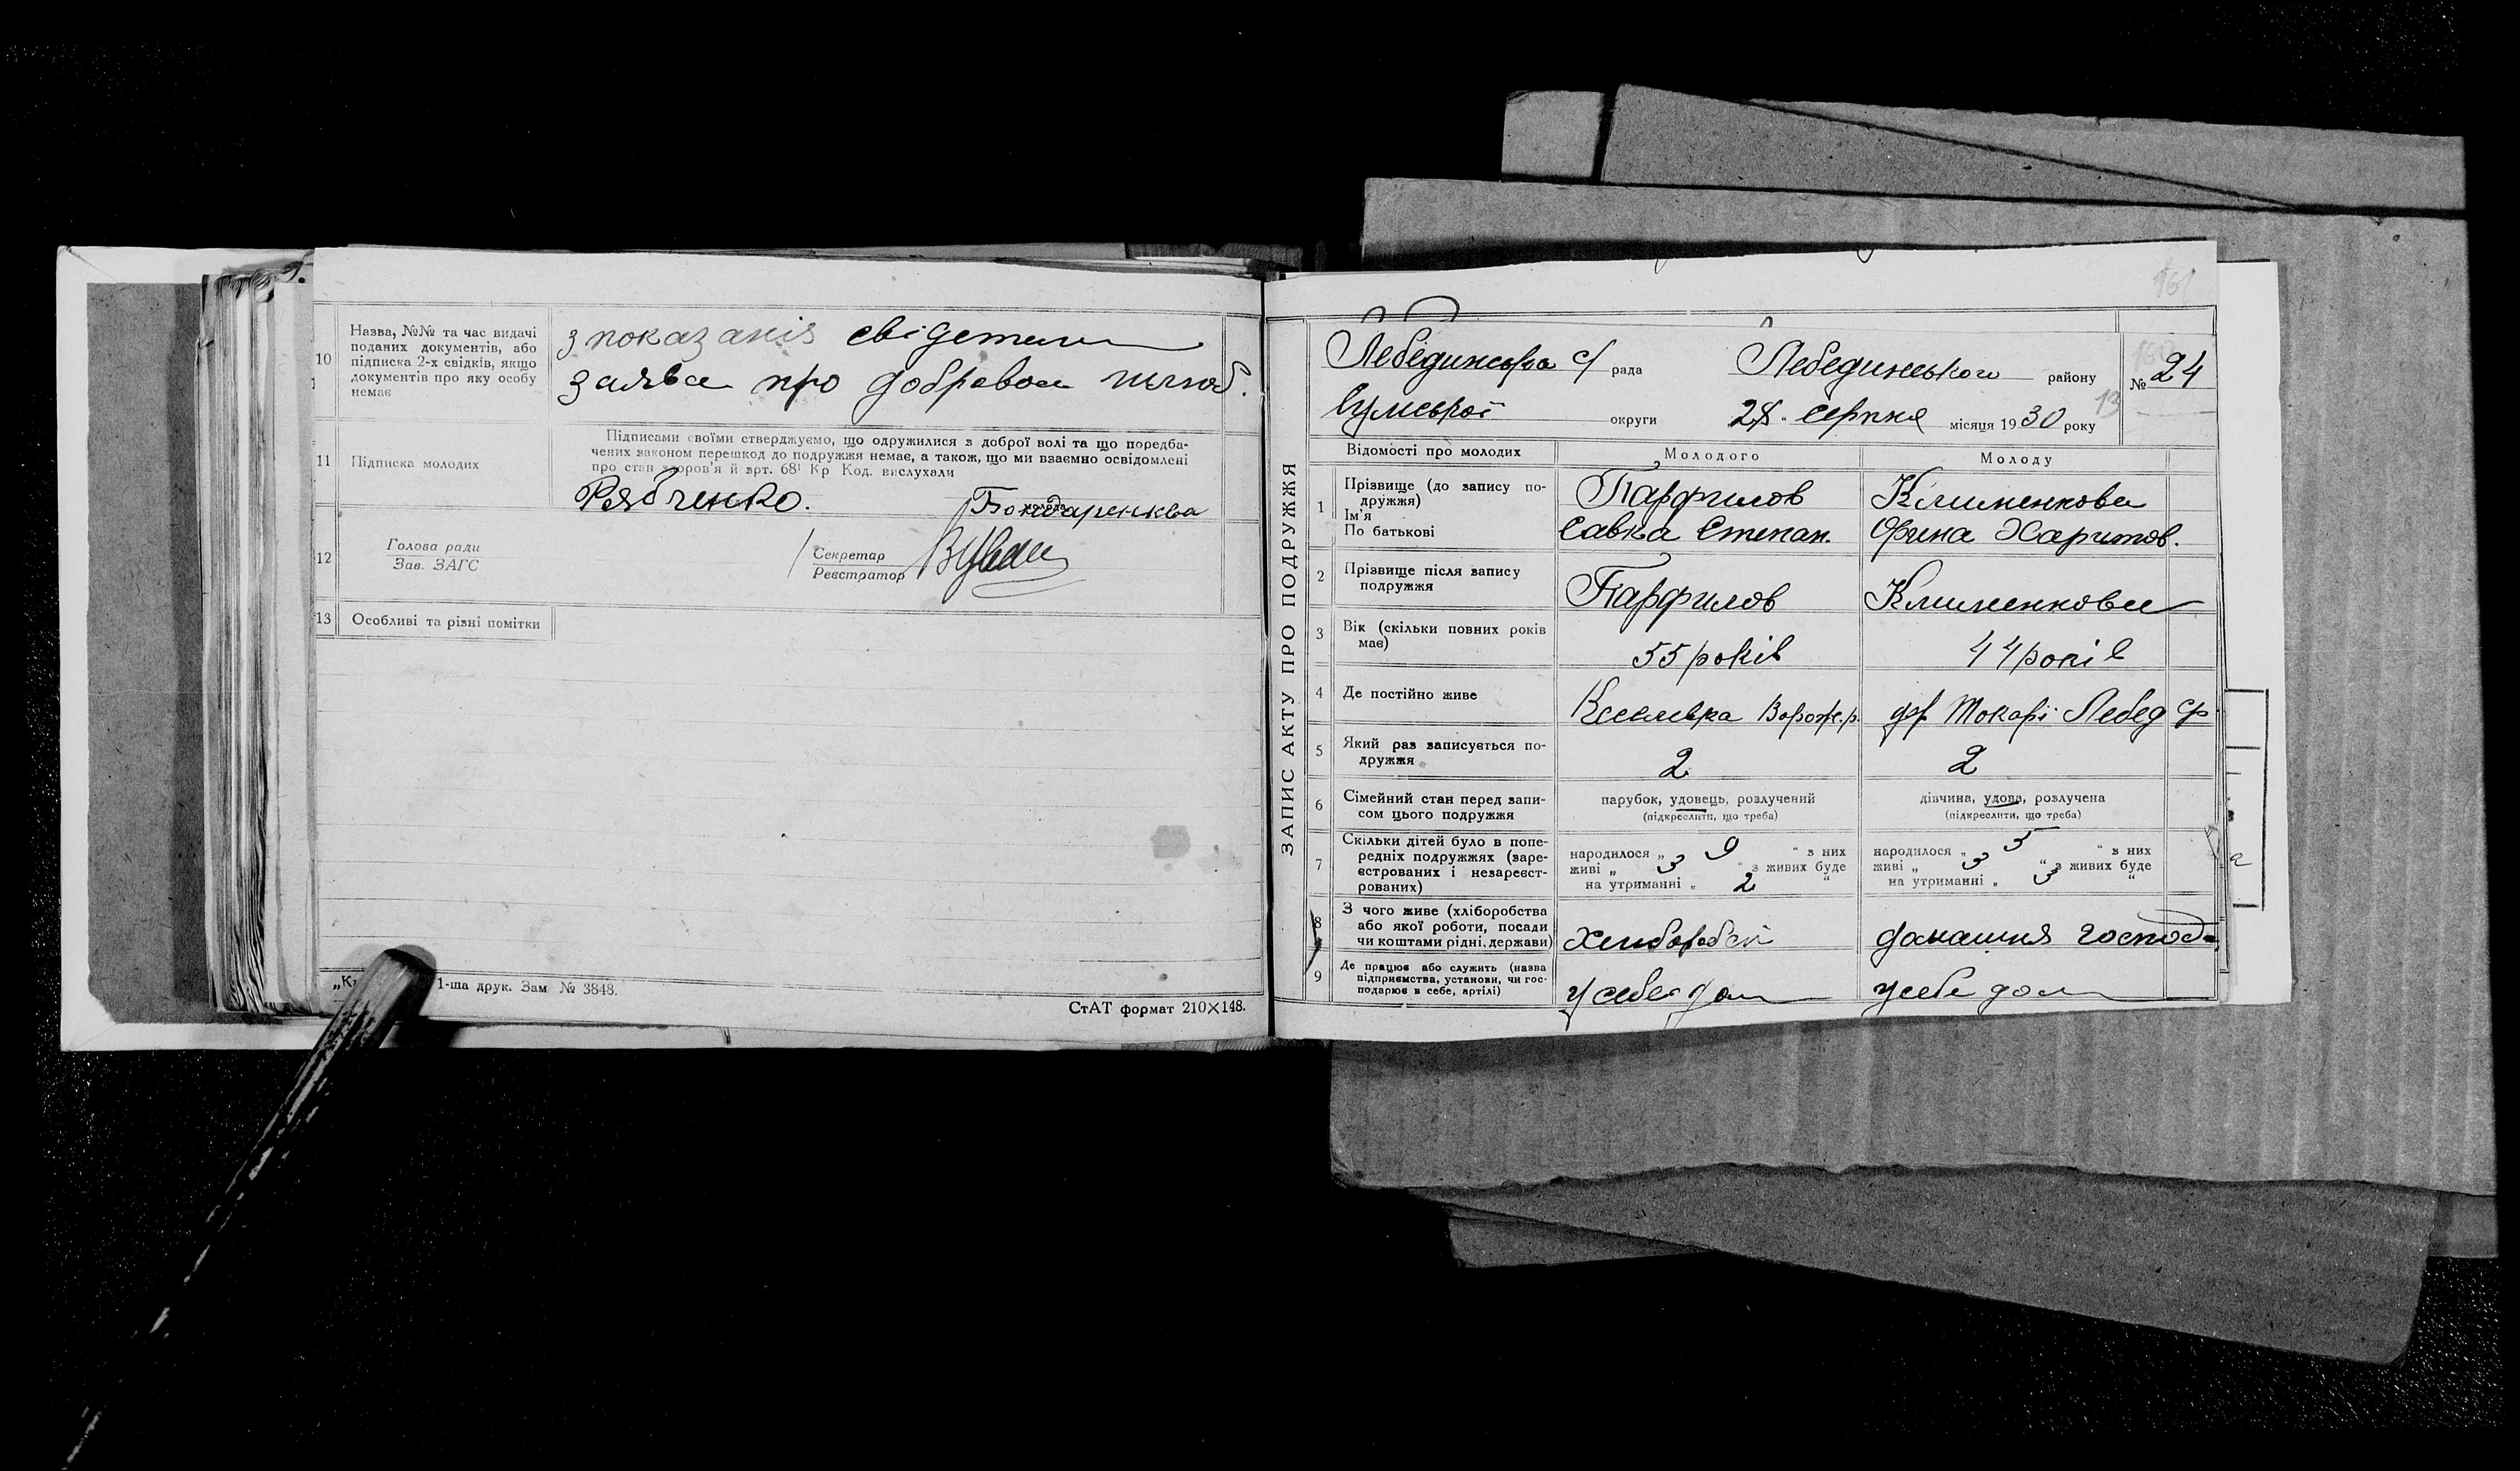 10
Назва, №№ та час видачі
поданих документів, або
підписка 2-х свідків, якщо
документів про яку особу
немає
з показанія свідетели
заява про добравол шлюб.
11
Підписка молодих
Підписами своїми стверджуємо, що одружилися з доброї волі та що поредба-
чених законом перешкод до подружжя немає, а також, що ми взаємно освідомлені
про стан здоров'я й арт. 68¹ Кр Код. вислухали
Рябченко.
Бондаренкова
12
Голова ради
Зав. ЗАГС
Секретар
Реєстратор
13
Особливі та різні помітки
1-ша друк. Зам № 3848.
СтАТ формат 210×148.
161
ЗАПИС АКТУ ПРО ПОДРУЖЖЯ
Лебединська с/ рада Лебединського району № 24
Сумської округи 28 серпня місяця 1930 року
13
Відомості про молодих
Молодого
Молоду
1
Прізвище (до запису по-
дружжя)
Ім'я
По батькові
Парфилов
Савка Степан.
Клименкова
Фрина Харитов.
2
Прізвище після запису
подружжя
Парфилов
Клименкова
3
Вік (скільки повних років
має)
55 років
44 років
4
Де постійно живе
Ворож.р.
Токарі Лебед ср
5
Який раз записується по-
дружжя
2
2
6
Сімейний стан перед запи-
сом цього подружжя
парубок, удовець, розлучений
(підкреслити, що треба)
дівчина, удова, розлучена
(підкреслити, що треба)
7
Скільки дітей було в попе-
редніх подружжях (заре-
єстрованих і незареєст-
рованих)
народилося „ 9 “ з них
живі „ 3 “ з живих буде
на утриманні „ 2 “
народилося „ 5 “ з них
живі „ 3 “ з живих буде
на утриманні „ 3 “
8
З чого живе (хліборобства
або якої роботи, посади
чи коштами рідні, держави)
домашня господ
9
Де працює або служить (назва
підприємства, установи, чи гос-
подарює в себе, артілі)
у себе дом
у себе дом